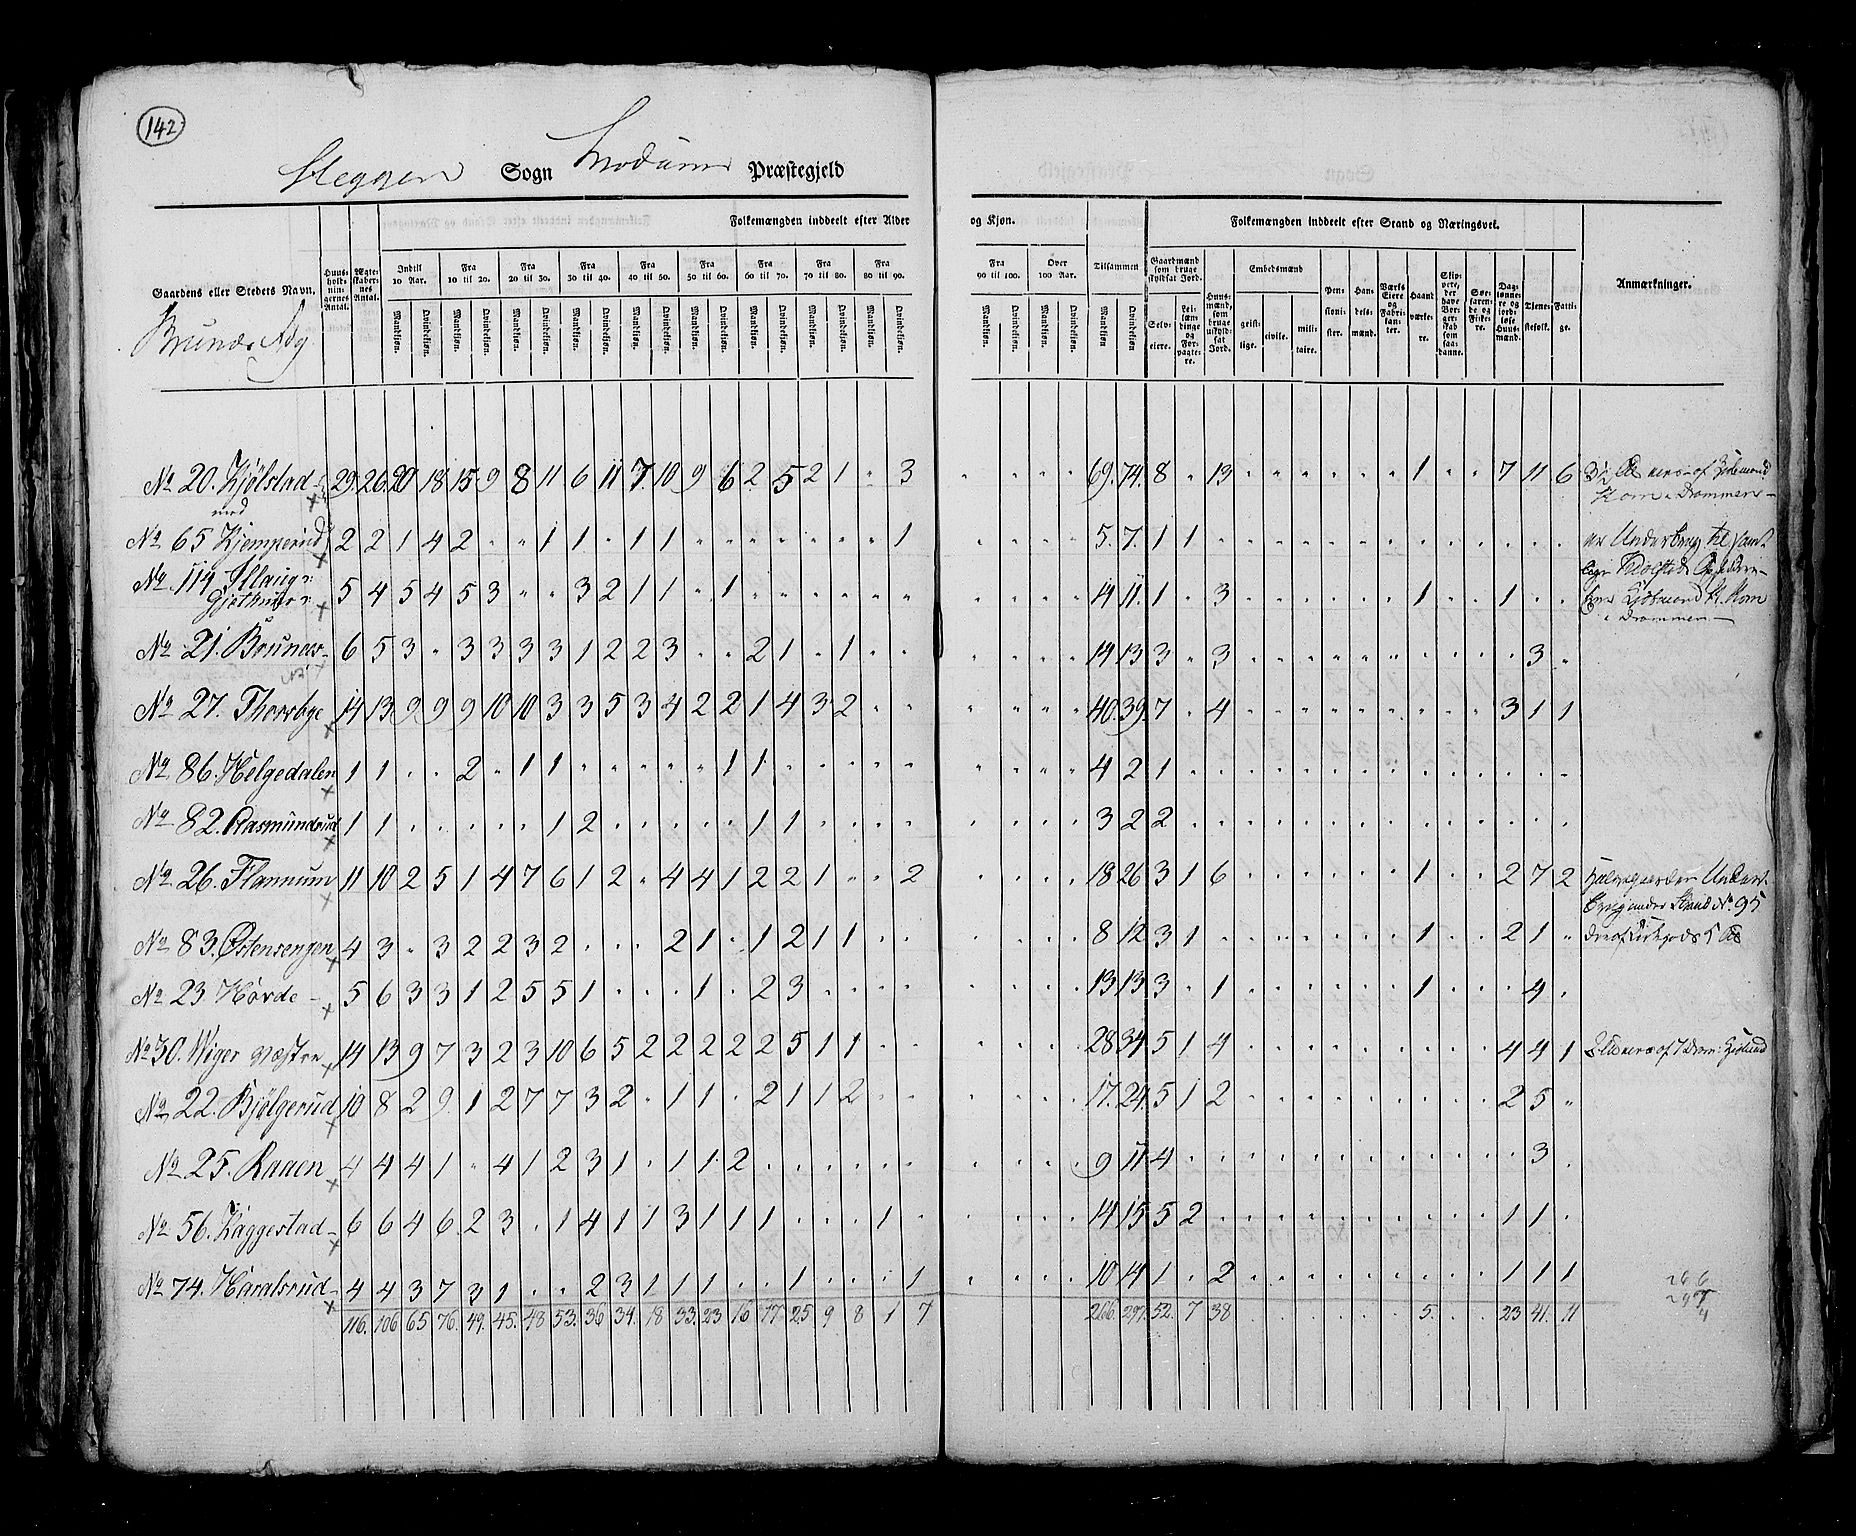 142
Heggen Sogn Modum Præstegjeld
Folkemængden inddeelt efter Alder og Kjøn.
Folkemængden inddeelt efter Stand og Næringsvei.
Gaardens eller Stedets Navn.
Huus-holdnin-gernes Antal.
Ægte-skaber-nes Antal.
Indtil 10 Aar.
Fra 10 til 20.
Fra 20 til 30.
Fra 30 til 40.
Fra 40 til 50.
Fra 50 til 60.
Fra 60 til 70.
Fra 70 til 80.
Fra 80 til 90.
Fra 90 til 100.
Over 100 Aar.
Tilsammen
Mandkjøn. Qvindekjøn.
Gaardmænd som bruge skyldsat Jord.
Selv-eiere.
Lei-læn-dinge og For-pagte-re.
Huus-mænd, som bruge uskyld-sat Jord.
Embedsmænd
geist-lige. civile. mili-taire.
Pen-sioni-ster.
Han-dels-mænd.
Værks Eiere og Fabri-kan-ter.
Haand værke-re.
Skip-pere, der have Bor-ger-skab som saa-danne.
Søe-faren-de og Fiske-re.
Dag-lønne-re og jord-løse Huus-mænd.
Tiene-stefolk.
Fatti-ge.
Anmærkninger.
Brunæs Ldg
No 20. Kjölstad 29 26 20 18 15 9 8 11 6 11 7 10 9 6 2 5 2 1 " 3 " " " " 69. 74. 8 " 13 " " " " " " 1 " " 7 11 6
med
No 65 Kjemperud 2 2 1 4 2 " " 1 1 " 1 1 " " " " " " " 1 " " " " 5. 7. 1 1 " " " " " " " " " " " " " er Underbrug til
No 114 Houg 5 4 5 4 5 3 " " 3 2 1 1 " 1 " " " " " " " " " " 19 11. 1 " 3 " " " " " " 1 " " 1 " "
Gjethuus
i Drammen
No 21. Brunæs 6 5 3 " 3 3 3 3 1 2 2 3 " " 2 1 " 1 " " " " " " 19 13 3 " 3 " " " " " " " " " " 3 "
No 27. Thorsbye 14 13 9 9 9 10 10 3 3 5 3 4 2 2 1 4 3 2 " " " " " " 40. 39. 7 " 4 " " " " " " " " " 3 1 1
No 86. Helgedalen 1 1 " " 2 " 1 1 " " " " " 1 1 " " " " " " " " " 4 2 1 " " " " " " " " " " " " " "
No 82. Rasmundrud 1 1 " " " " " 1 2 " " " " " 1 1 " " " " " " " " 3 2 2 " " " " " " " " " " " " " "
No 26. Flannum 11 10 2 5 1 4 7 6 1 2 " 4 4 1 2 2 1 " " 2 " " " " 18 26 3 1 6 " " " " " " 1 " " 2 7 2
No. 95
No 83. Östensengen 4 3 " 3 2 2 3 2 " " " 2 1 " 1 2 1 1 " " " " " " 8 12 3 1 " " " " " " " 1 " " 2 1 "
No 23 Hovde 5 6 3 3 1 2 5 5 1 " " " 1 " 2 3 " " " " " " " " 13 13 3 " 1 " " " " " " 1 " " " 4 "
No 30. Wiger væstre 14 13 9 7 3 2 3 10 6 5 2 2 2 2 2 5 1 1 " " " " " " 28 34 5 1 4 " " " " " " " " " 4 4 1
No 22. Bjölgerud 10 8 2 9 1 2 7 7 3 2 " 1 1 " 2 1 1 2 " " " " " " 17. 24. 5 1 2 " " " " " " " " " 2 5 "
No 25. Raaen 4 4 4 1 " 4 1 2 3 1 " 1 1 2 " " " " " " " " " " 9 11 4 " " " " " " " " " " " " 3 "
No 56. Kaggestad 6 6 4 6 2 3 " 1 4 1 1 3 1 1 1 " " " 1 " " " " " 14 15 5 2 " " " " " " " " " " 1 1 "
No 74. Haralsrud 4 4 3 7 3 1 " " 2 3 1 1 1 " " 1 " " " 1 " " " " 10 14 1 " 2 " " " " " " " " " 1 1 1
116. 106 65 76. 49. 45. 48 53. 36 34. 18 33. 23 16 17 25 9 8 1 7 266. 297. 52. 7 38 5. 23 41. 11